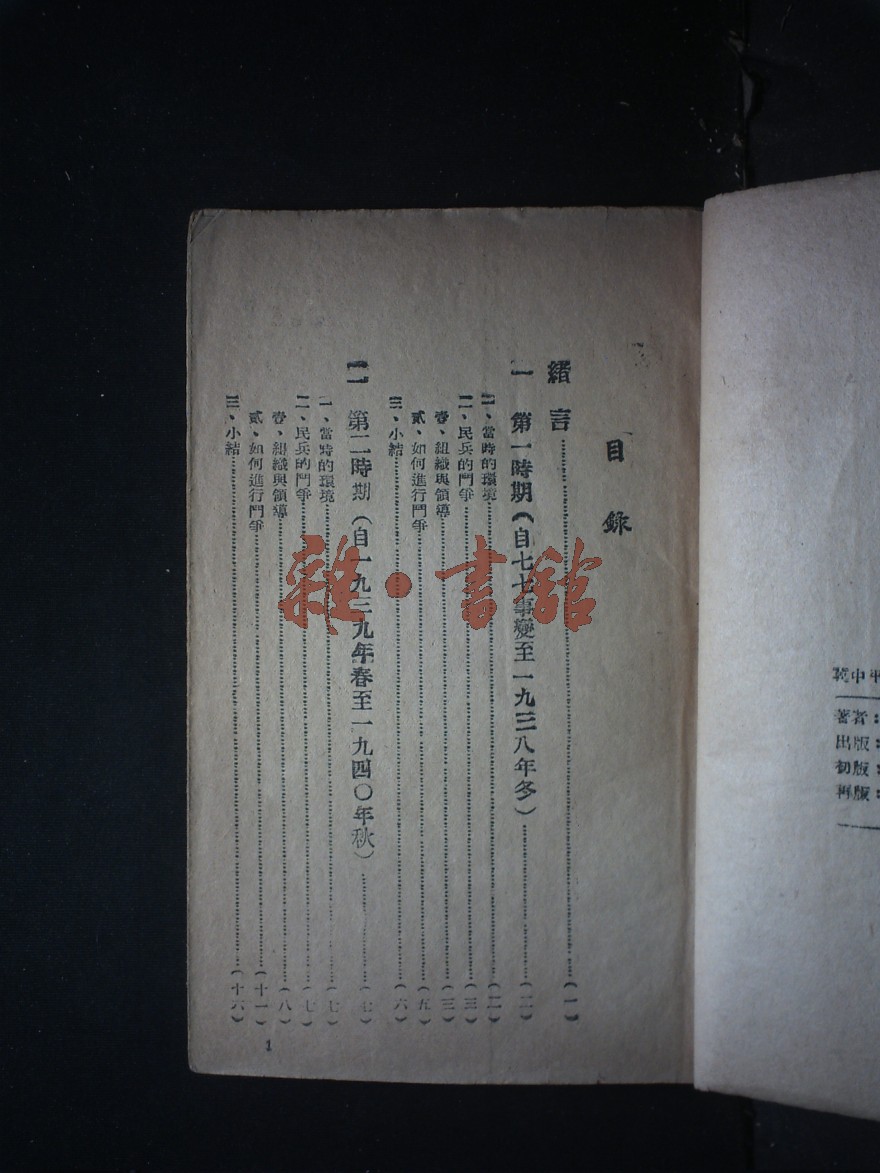 目錄
緒言……(一)
一 第一時期(自七七事變至一九三八年冬)……(二)
一、當時的環境……(二)
二、民兵的鬥爭……(三)
壹、組織與領導……(三)
貳、如何進行鬥爭……(五)
三、小結……(六)
二 第二時期(自一九三九年春至一九四〇年秋)……(七)
一、當時的環境……(七)
二、民兵的鬥爭……(七)
壹、組織與領導……(八)
貳、如何進行鬥爭……(十一)
三、小結……(十六)
1
雜·書館
冀中平
著者:
出版:
初版:
再版: